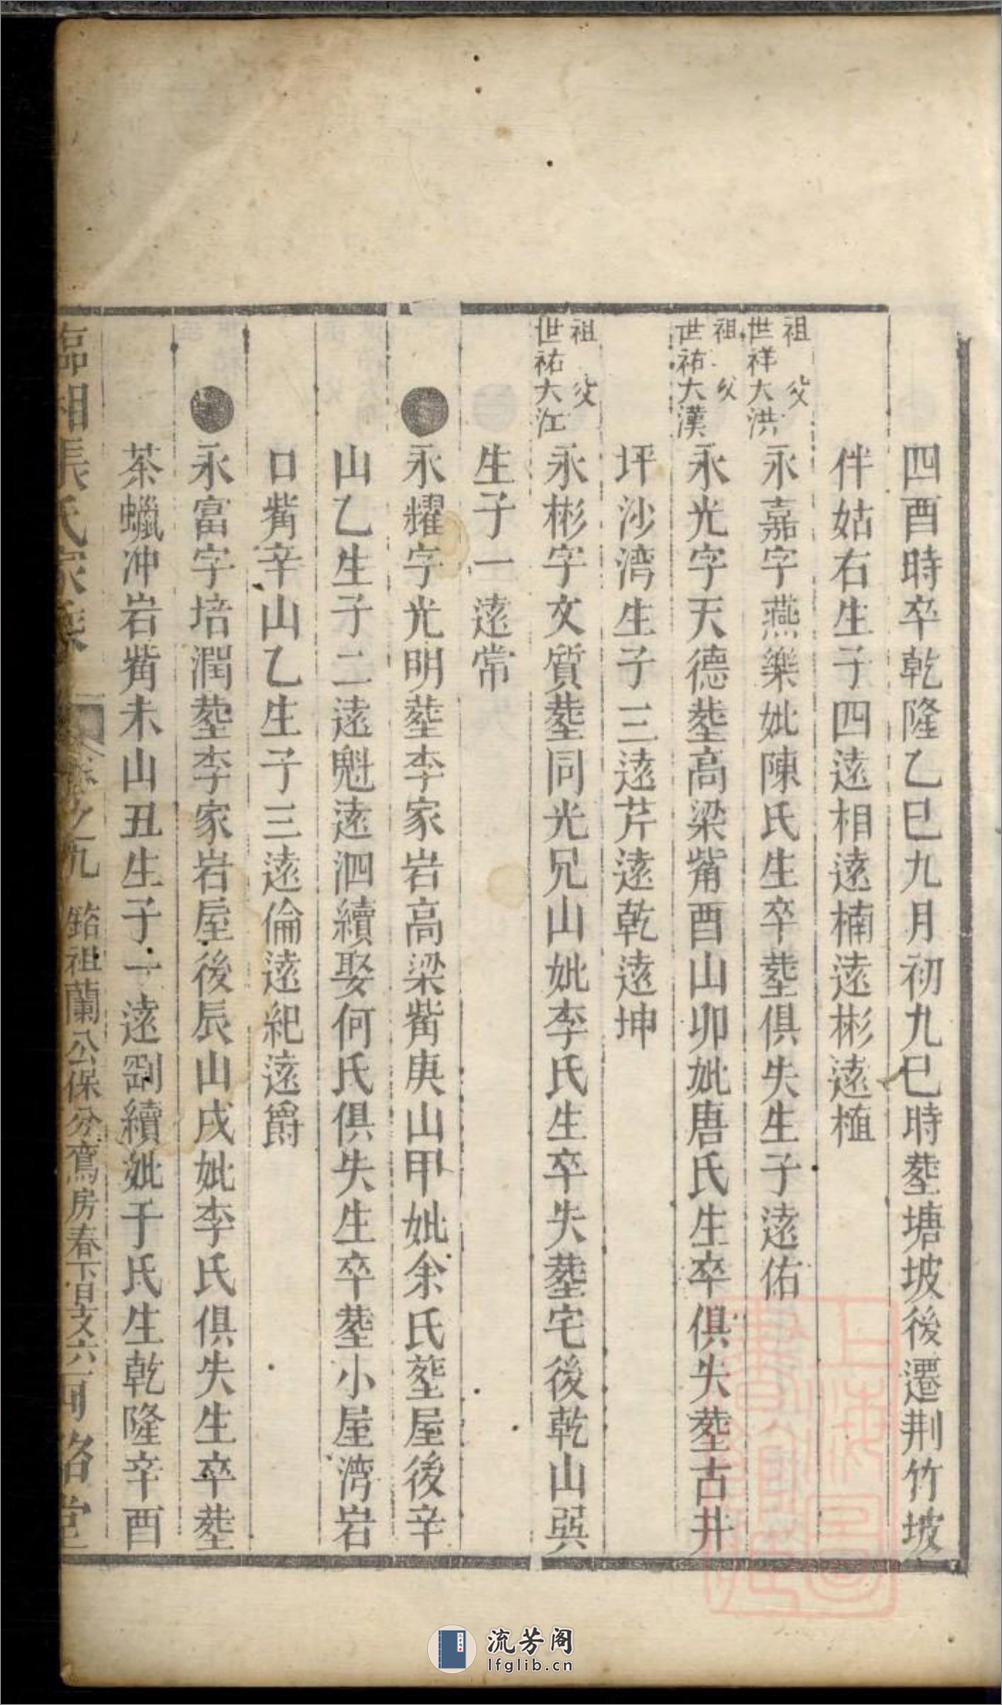 四酉時卒乾隆乙巳九月初九巳時塟塘坡後遷荆竹坡
伴姑右生子四遠相遠楠遠彬遠植
祖世祥父大洪
永嘉字燕樂妣陳氏生卒塟俱失生子遠佑
祖世祐父大漢
永光字天德塟高梁觜酉山卯妣唐氏生卒俱失塟古井
坪沙湾生子三遠芹遠乾遠坤
祖世祐父大江
永彬字文質塟同光兄山妣李氏生卒失塟宅後乾山巽
生子一遠常
永耀字光明塟李家岩高梁觜庚山甲妣余氏塟屋後辛
山乙生子二遠魁遠泗續娶何氏俱失生卒塟小屋湾岩
口觜辛山乙生子三遠倫遠紀遠爵
永富字培潤塟李家岩屋後辰山戌妣李氏俱失生卒塟
茶蠟冲岩觜未山丑生子一遠劄續妣于氏生乾隆辛酉
臨湘張氏家乘 卷之九 銘祖蘭公保分鳶房春下百叉六 河洛堂
上海圖書館藏
流芳阁
lfglib.cn